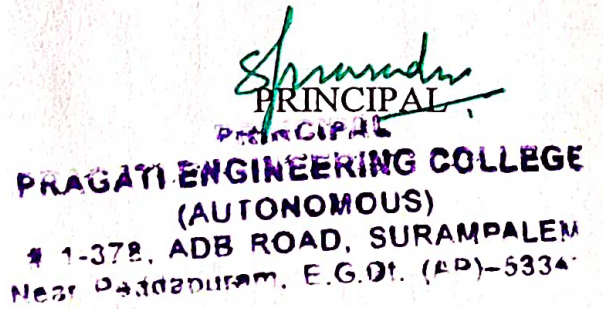 PRINCIPAL
PRINCIPAL
PRAGATI ENGINEERING COLLEGE
(AUTONOMOUS)
# 1-378, ADB ROAD, SURAMPALEM
Near Peddapuram, E.G.Dt. (AP)-5334